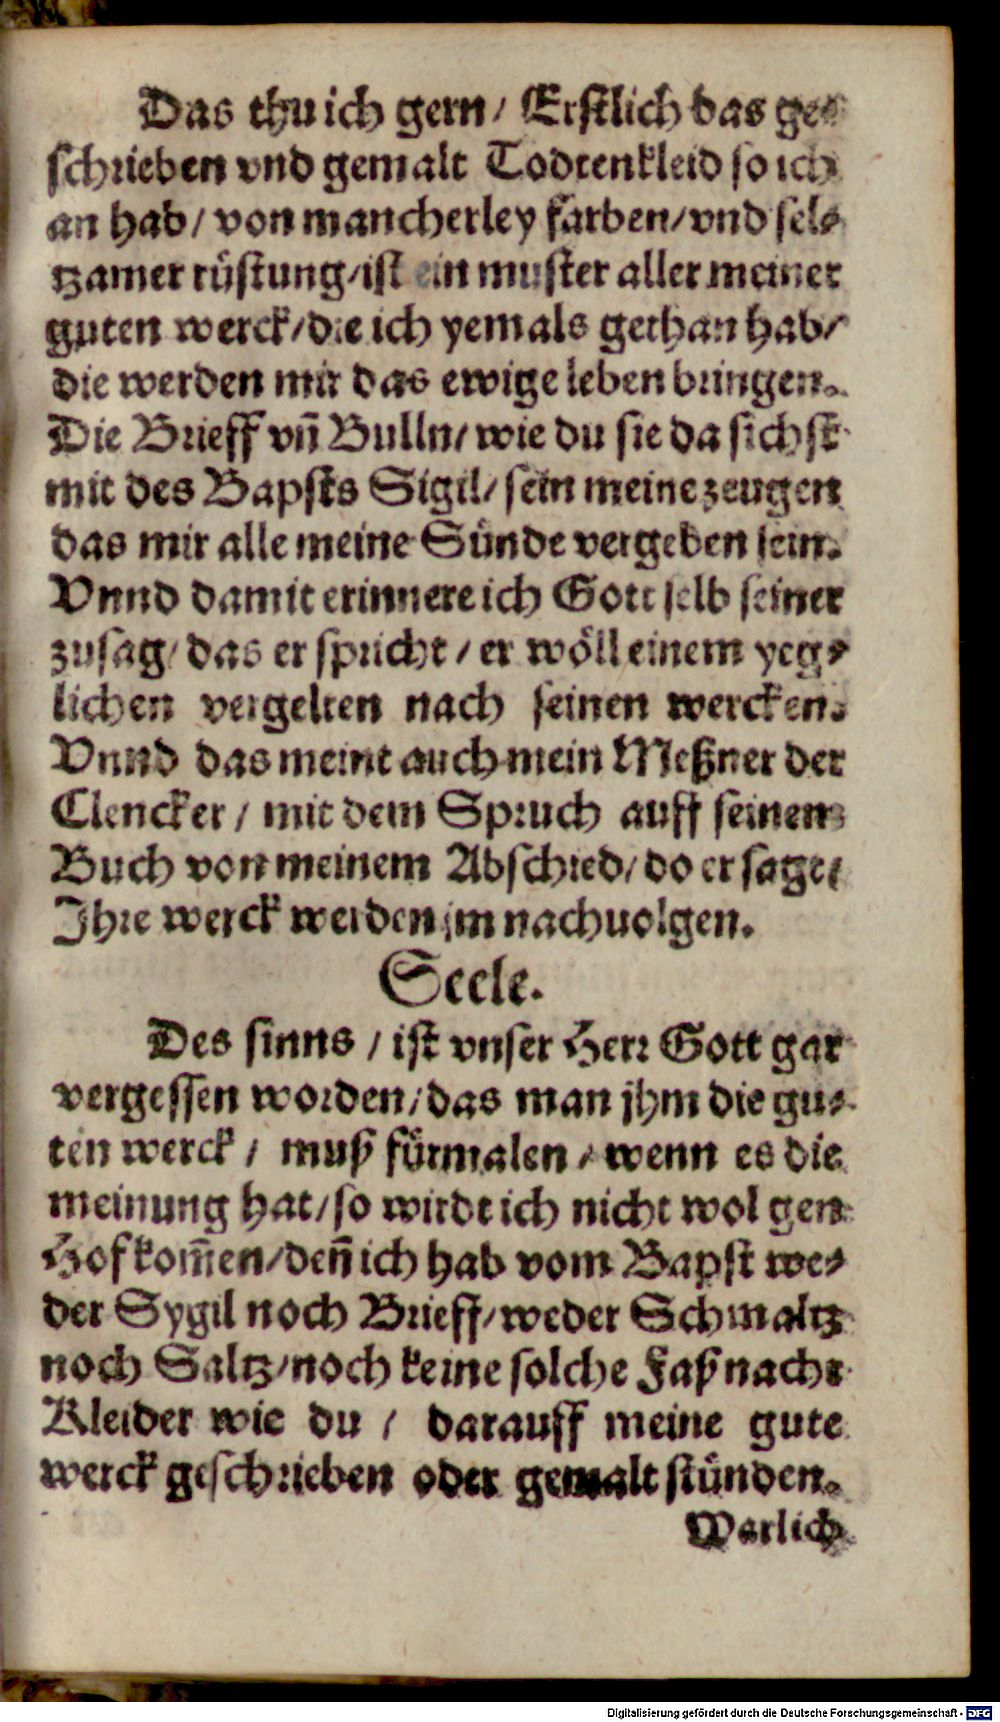 Das thu ich gern/ Erstlich das ge⸗
schrieben vnd gemalt Todtenkleid so ich
an hab/ von mancherley farben/ vnd sel⸗
tzamer rüstung/ ist ein muster aller meiner
guten werck/ die ich yemals gethan hab/
die werden mir das ewige leben bringen.
Die Brieff vñ Bulln/ wie du sie da sichst
mit des Bapsts Sigil/ sein meine zeugen
das mir alle meine Sünde vergeben sein.
Vnnd damit erinnere ich Gott selb seiner
zusag/ das er spricht/ er wöll einem yeg⸗
lichen vergelten nach seinen wercken.
Vnnd das meint auch mein Meßner der
Clencker/ mit dem Spruch auff seinem
Buch von meinem Abschied/ do er saget/
Ihre werck werden jm nachuolgen.
Seele.
Des sinns/ ist vnser Herr Gott gar
vergessen worden/ das man jhm die gu⸗
ten werck/ muß fürmalen/ wenn es die
meinung hat/ so wirdt ich nicht wol gen
Hof kom̃en/ deñ ich hab vom Bapst we⸗
der Sygil noch Brieff/ weder Schmaltz
noch Saltz/ noch keine solche Faßnacht
Kleider wie du/ darauff meine gute
werck geschrieben oder gemalt stünden.
Warlich
Digitalisierung gefördert durch die Deutsche Forschungsgemeinschaft - DFG